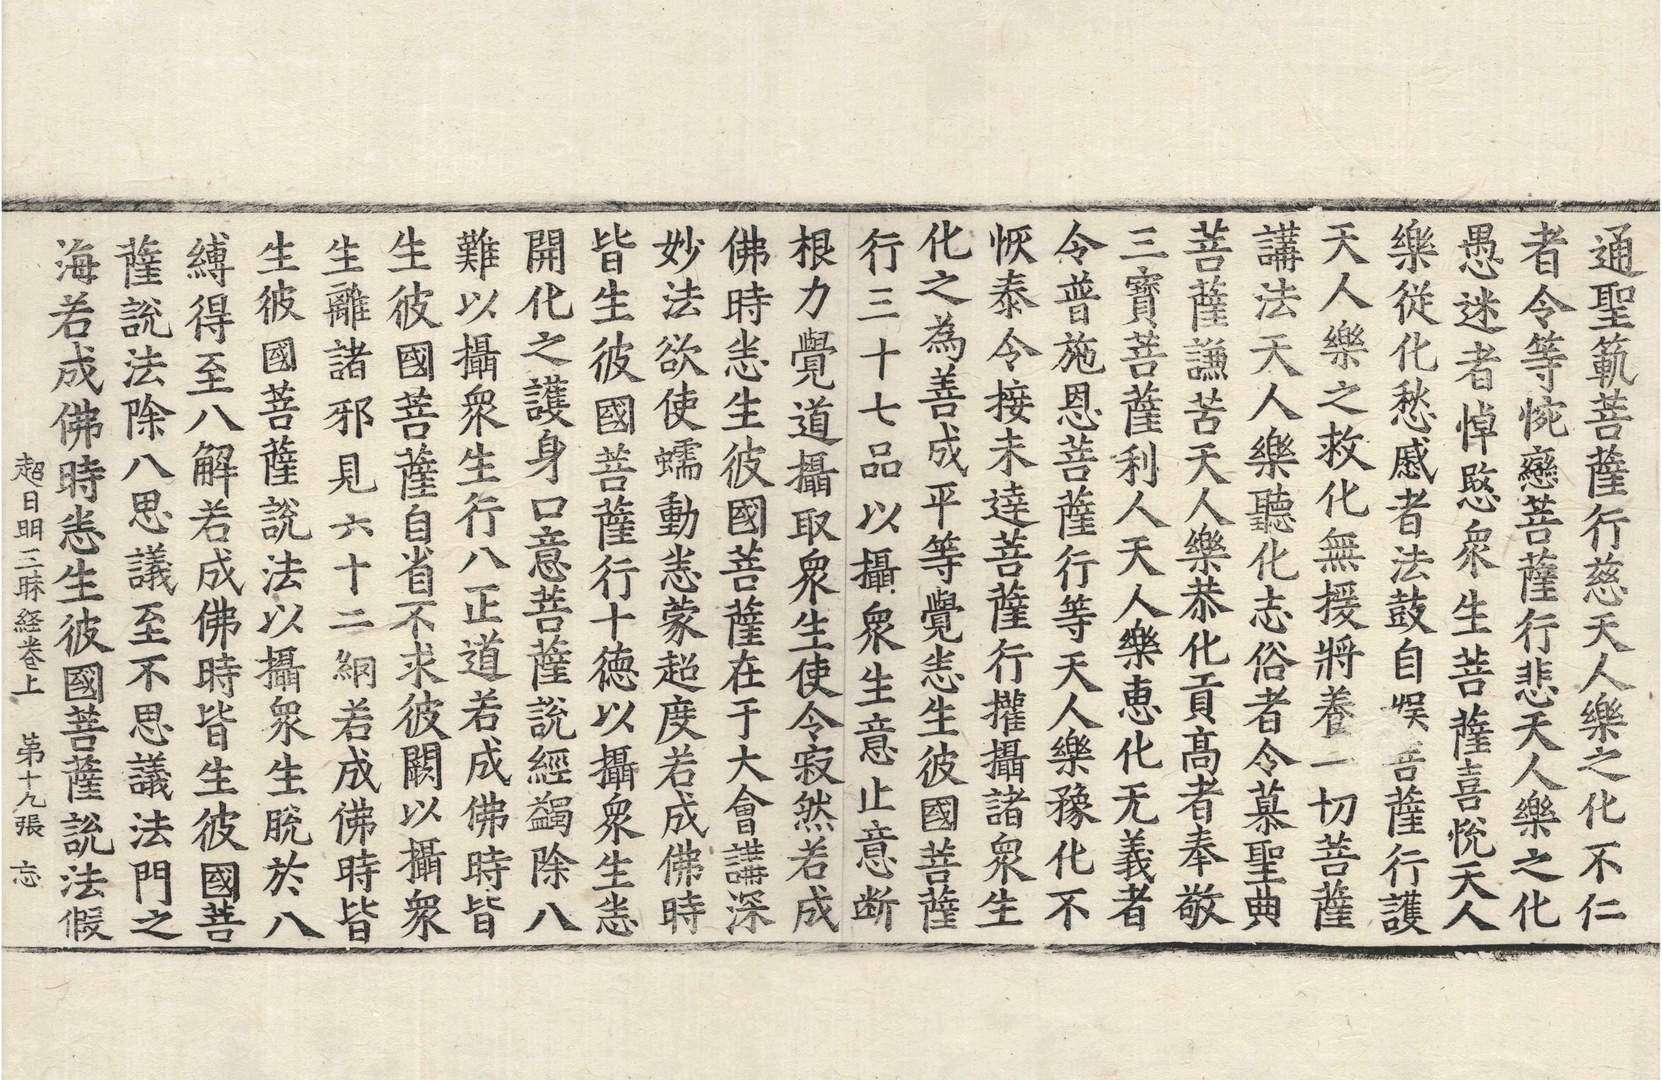 通聖範菩薩行慈天人樂之化不仁
者令等惋戀菩薩行悲天人樂之化
愚迷者悼愍衆生菩薩喜悅天人
樂從化愁慼者法鼓自娛菩薩行護
天人樂之救化無援將養一切菩薩
講法天人樂聽化志俗者令慕聖典
菩薩謙苦天人樂恭化貢高者奉敬
三寶菩薩利人天人樂恵化无義者
令普施恩菩薩行等天人樂豫化不
恢泰令接未達菩薩行攉攝諸衆生
化之為善成平等覺恙生彼國菩薩
行三十七品以攝衆生意止意断
根力覺道攝取衆生使令寂然若成
佛時恙生彼國菩薩在于大會講深
妙法欲使蠕動恙蒙超度若成佛時
皆生彼國菩薩行十德以攝衆生恙
開化之護身口意菩薩說經蠲除八
難以攝衆生行八正道若成佛時皆
生彼國菩薩自省不求彼闕以攝衆
生離諸邪見六十二網若成佛時皆
生彼國菩薩說法以攝衆生脫於八
縛得至八解若成佛時皆生彼國菩
薩說法除八思議至不思議法門之
海若成佛時恙生彼國菩薩說法假
超日明三昧経巻上　第十九張　忘